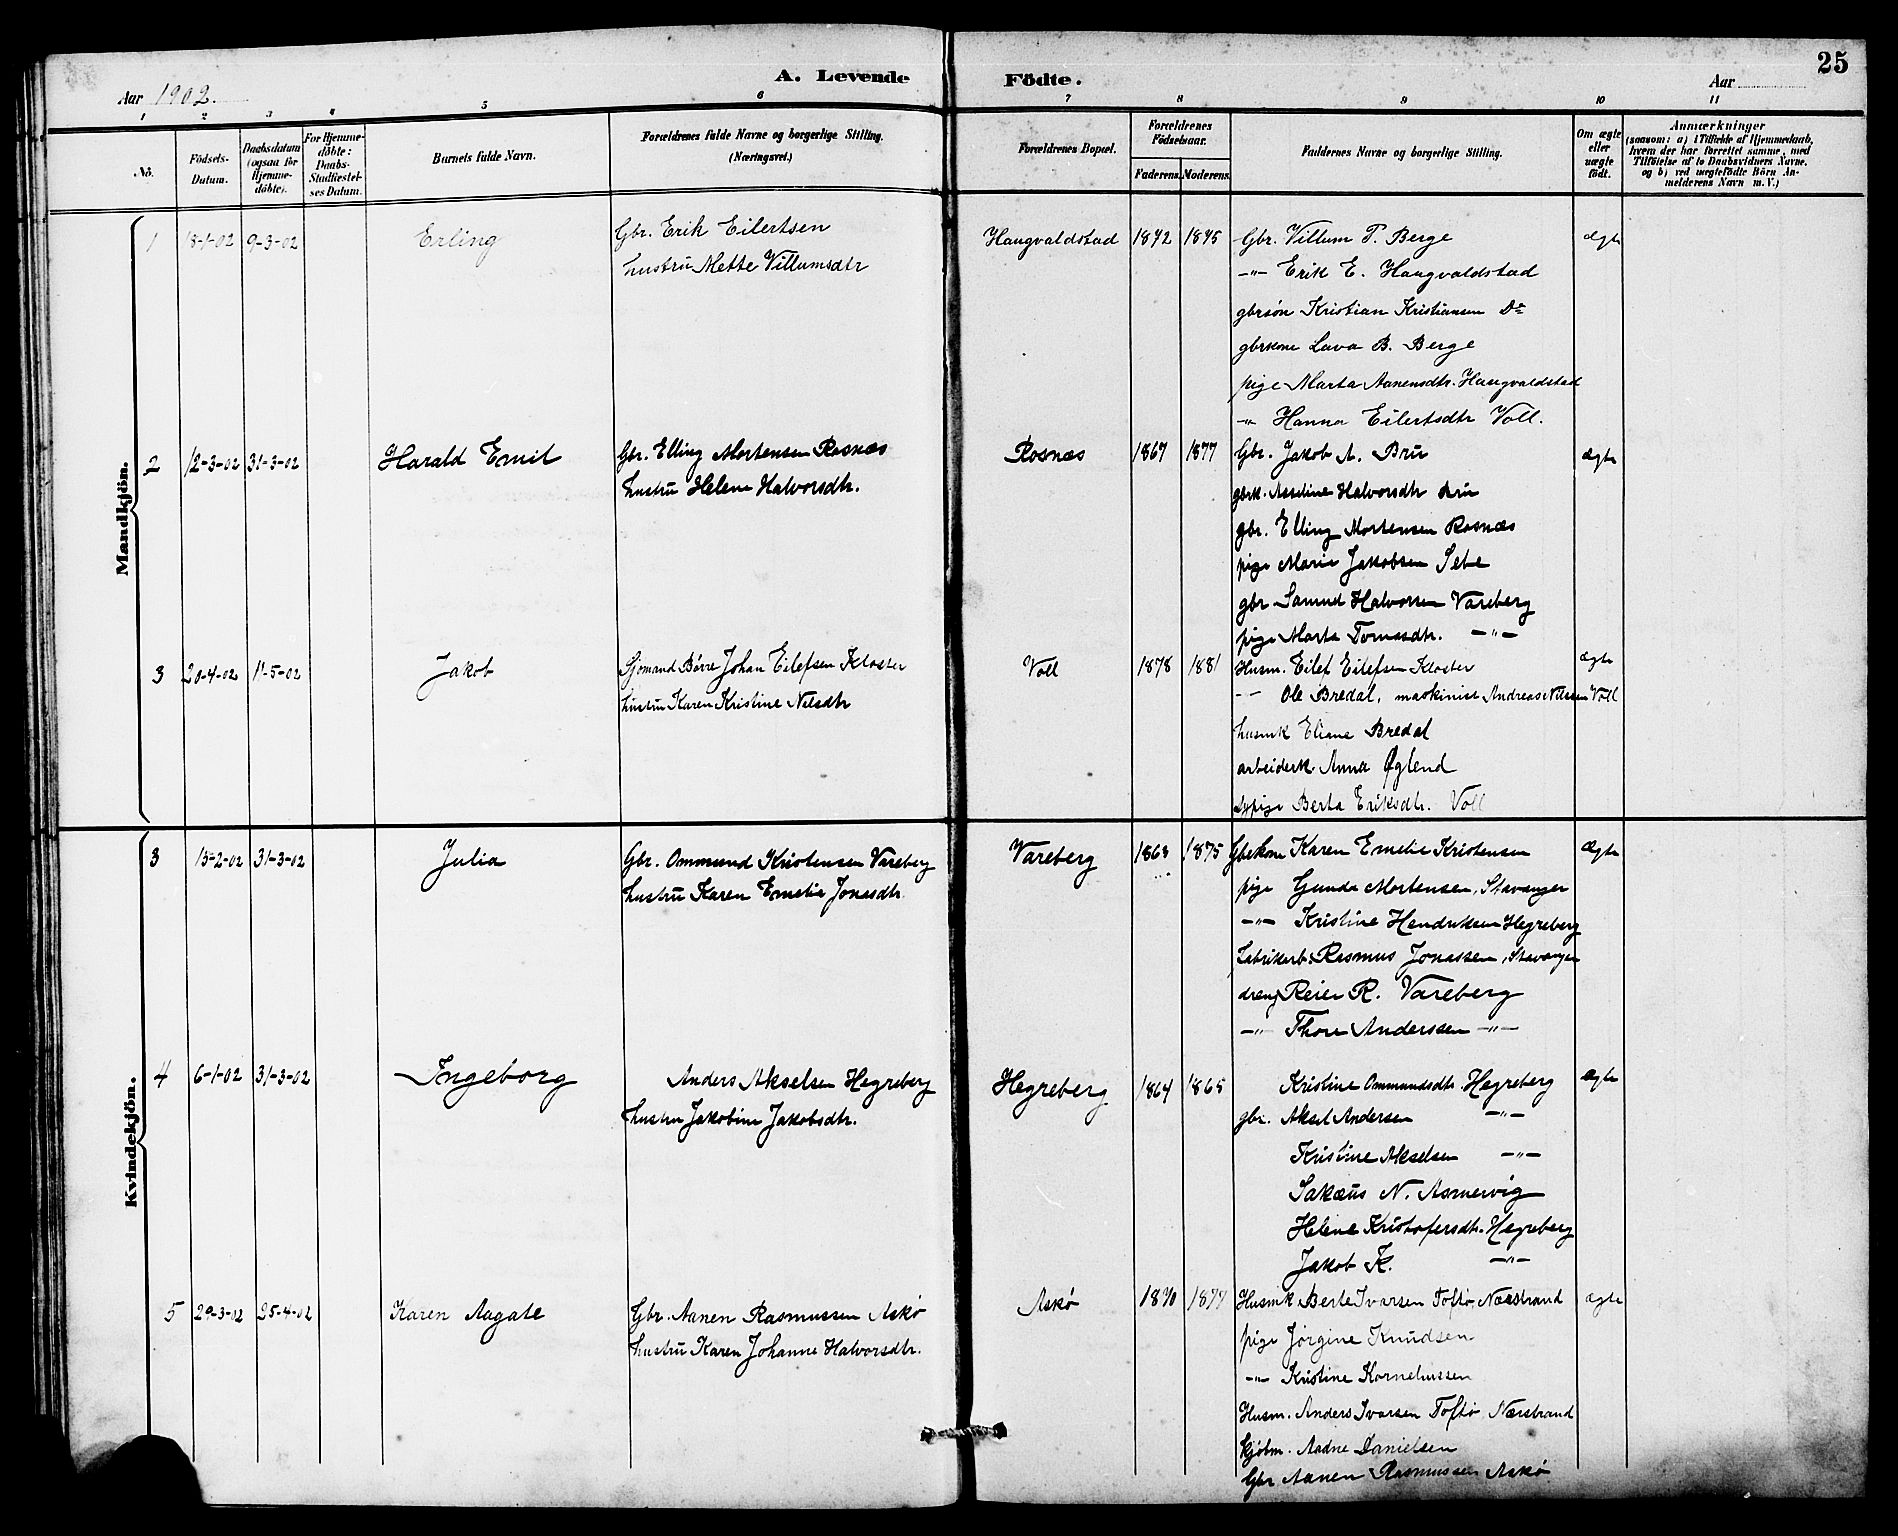 25
A. Levende Födte.
Aar 1902. Aar
1 2 3 4 5 6 7 8 9 10 11
No.
Födsels-Datum.
Daabsdatum (ogsaa for Hjemmedöbte).
For Hjemmedöbte: Daabs-Stadfæstelses Datum.
Barnets fulde Navn.
Forældrenes fulde Navne og borgerlige Stilling. (Næringsvei.)
Forældrenes Bopæl.
Forældrenes Födselsaar.
Faderens. Moderens.
Faddernes Navne og borgerlige Stilling.
Om ægte eller uægte födt.
Anmærkninger
(saasom: a) i Tilfælde af Hjemmedaab,
hvem der har forrettet samme, med
Tilföielse af to Daabsvidners Navne,
og b) ved uægtefödte Börn An-
melderens Navn m. V.)
Mandkjön.
1 18-1-02 9-3-02 Erling Gbr. Erik Eilertsen Haugvaldstad 1872 1875 Gbr. Villum T. Berge ægte
hustru Mette Villumsdtr -"- Erik E. Haugvaldstad
gbrsön Kristian Kristiansen Do
gbrkone Lava B. Berge
pige Marta Aanensdtr. Haugvaldstad
-"- Hanna Eilertsdtr Voll.
2 12-3-02 31-3-02 Harald Emil Gbr. Elling Mortensen Rosnæs Rosnæs 1867 1877 Gbr. Jakob A. Bru ægte
hustru Helene Halvorsdtr. gbrk. Asseline Halvorsdtr Bru
gbr. Elling Mortensen Rosnæs
pige Marie Jakobsen Sebe
gbr Samuel Halvorsen Vareberg
pige Marta Tomasdtr. -"-
3 20-4-02 11-5-02 Jakob Sjömand Börre Johan Eilefsen Kloster Voll 1878 1881 Husm. Eilef Eilefsen Kloster ægte
hustru Karen Kristine Nilsdtr -"- Ole Bredal, maskinist Andreas Nilssen Voll
husmk Eliane Bredal
arbeiderk. Anna Øglend
sypige Berta Eriksdtr. Voll
Kvindekjön.
3 15-2-02 31-3-02 Julia Gbr. Ommund Kristensen Vareberg Vareberg 1863 1875 Gbrkone Karen Emelie Kristensen Ægte
hustru Karen Emelie Jonasdtr. pige Gunda Mortensen, Stavanger
-"- Kristine Hendriksen Hegreberg
Fabrikarb. Rasmus Jonassen, Stavanger
dreng Reier R. Vareberg
-"- Thore Anderssen -"-
4 6-1-02 31-3-02 Ingeborg Anders Akselsen Hegreberg Hegreberg 1864 1865 Kristine Ommundsdtr Hegreberg ægte
hustru Jakobine Jakobsdtr. gbr. Aksel Andersen -"-
Kristine Akselsen -"-
Sakæus N. Asmervig
Helene Kristofersdtr. Hegreberg
Jakob K. -"-
5 29-3-02 25-4-02 Karen Aagate Gbr. Aanen Rasmussen Askö Askö 1870 1877 Husmk Berte Ivarsen Toftö, Nærstrand ægte
hustru Karen Johanne Halvorsdtr. pige Jörgine Knudsen
-"- Kristine Korneliussen
Husm. Anders Ivarsen Toftö, Nærstrand
kjöbm. Aadne Danielsen
Gbr Aanen Rasmussen Askö